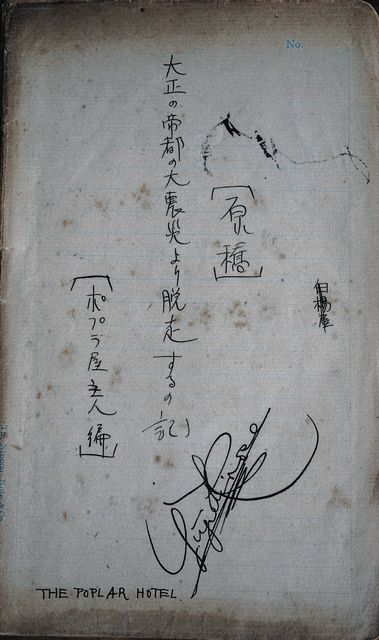 No.
白楊屋
［原稿］
大正の帝都の大震災より脱走するの記
［ポプラ屋主人編］
THE POPLAR HOTEL.